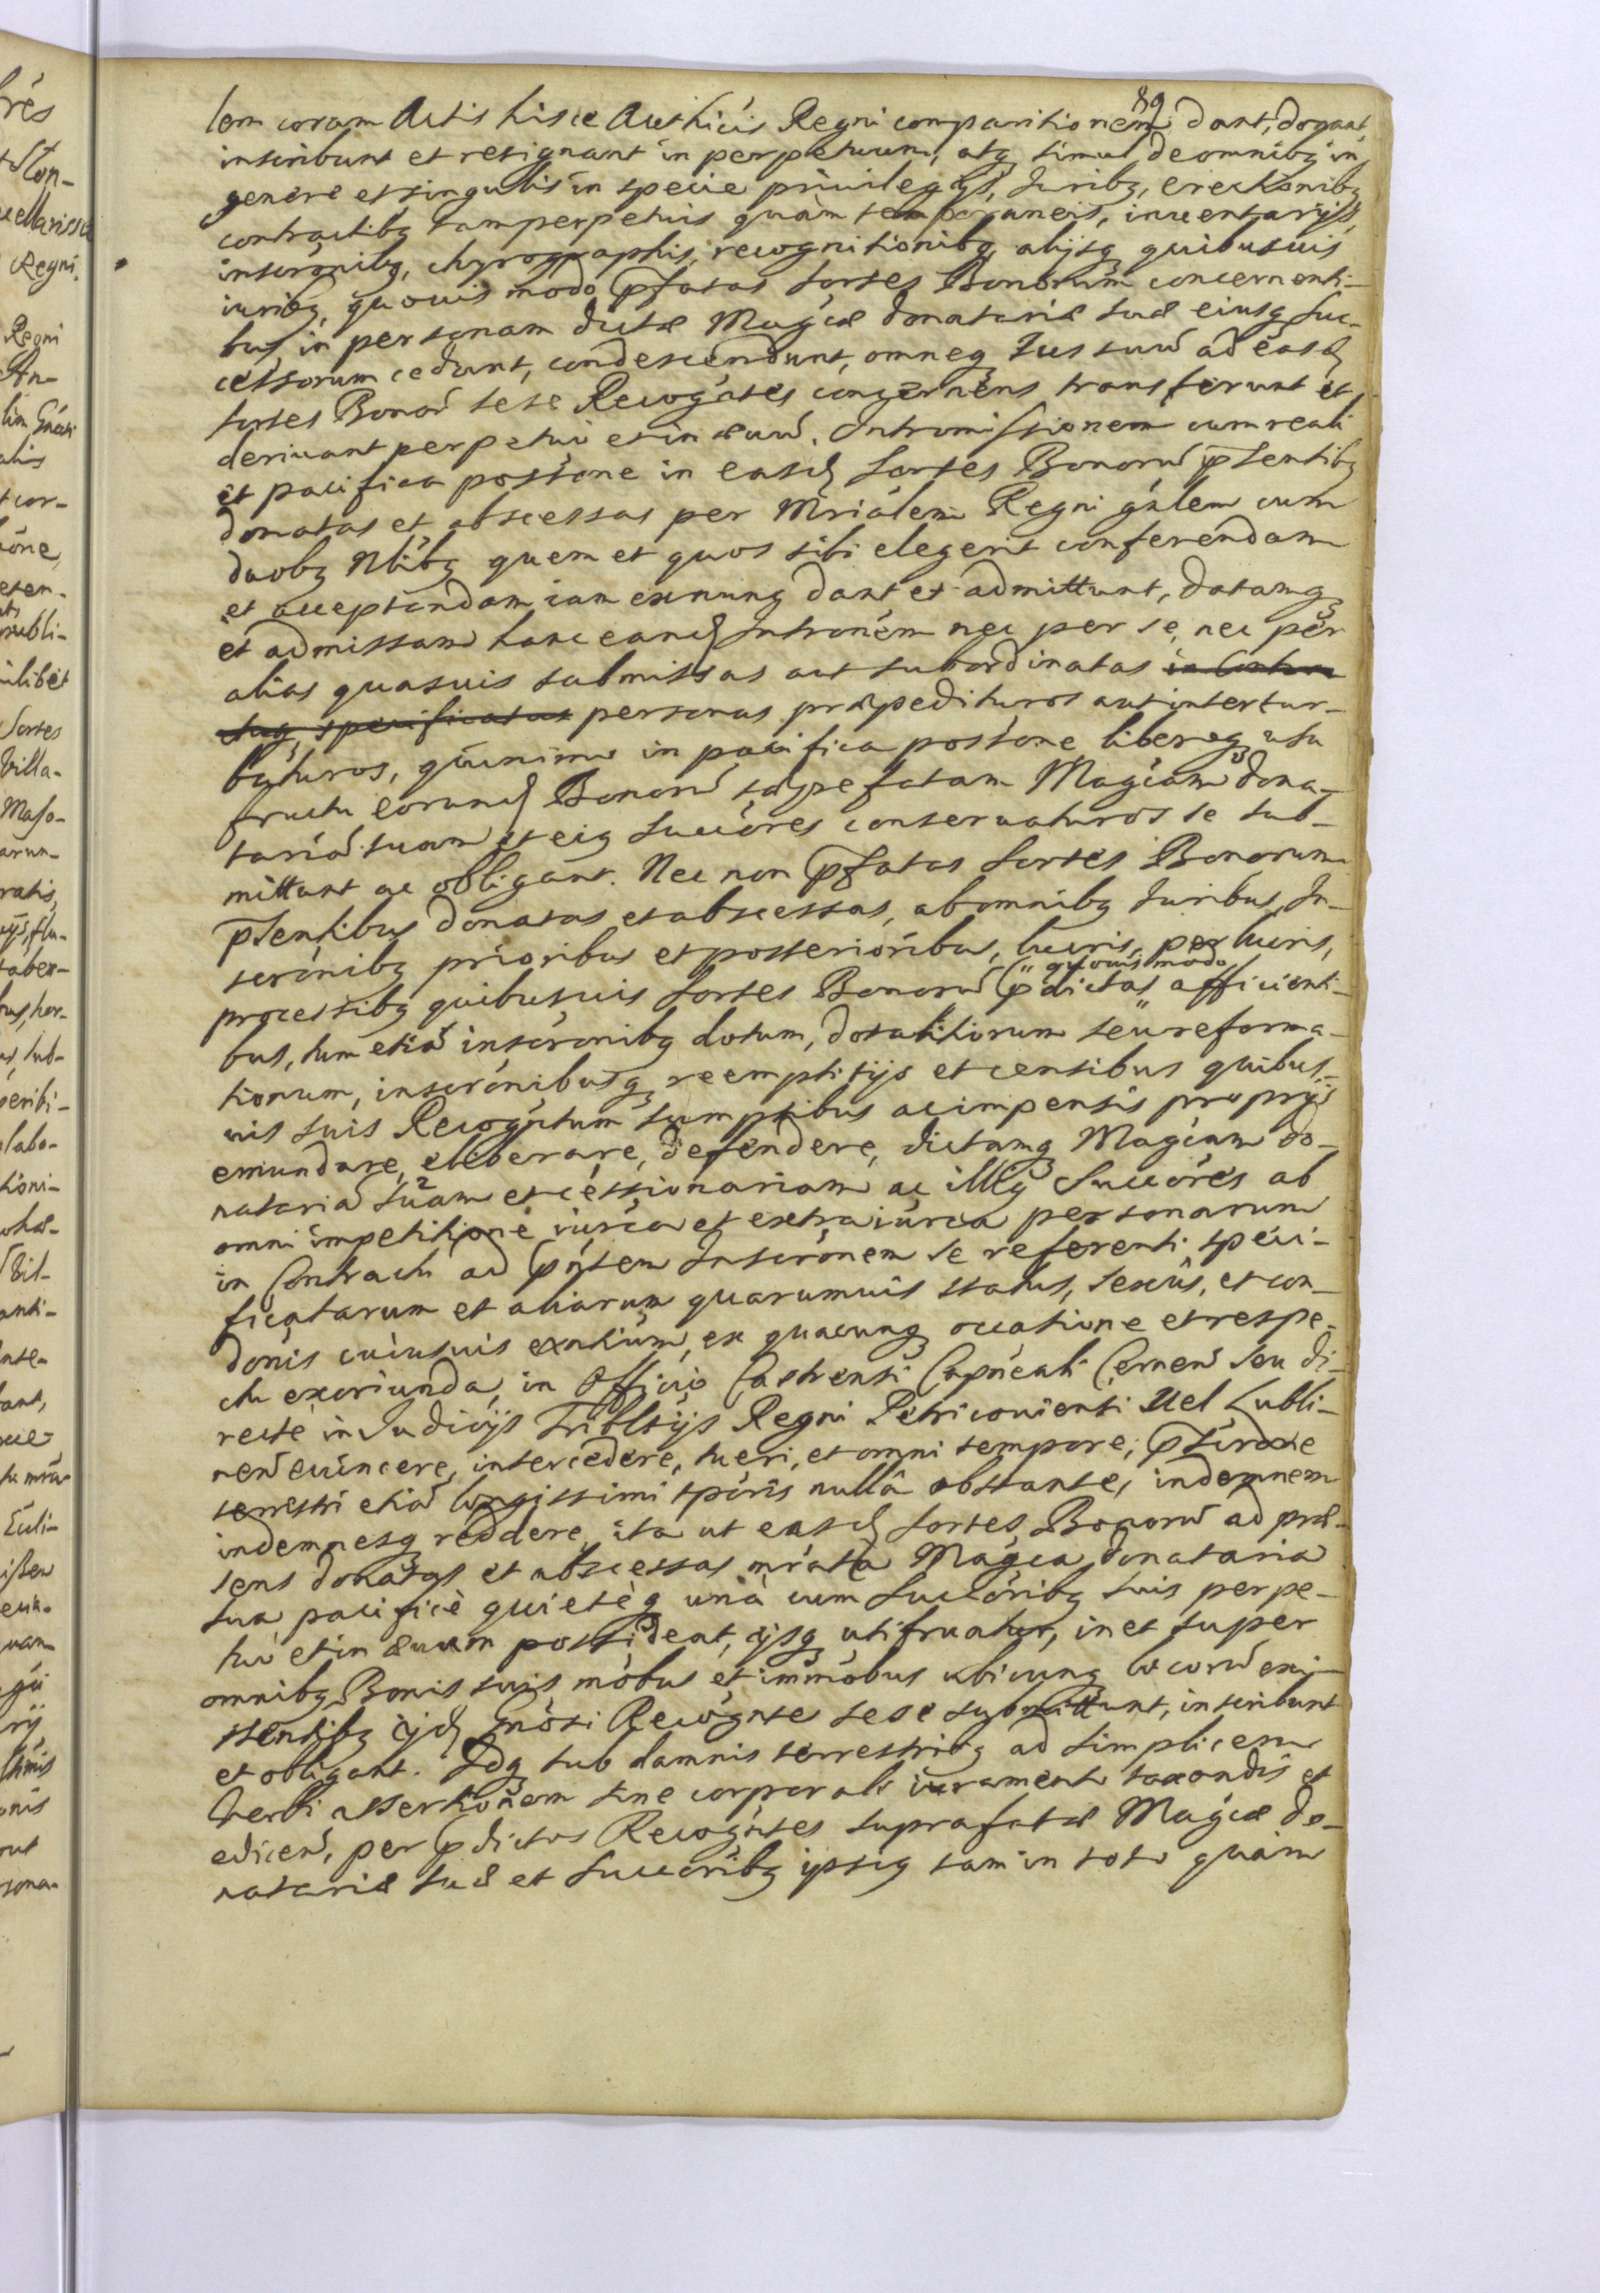 89
lem coram Actis hisce Authicis Regni comparitionem dant, donant,
inscribunt et resignant in perpetuum, atq simul de omnibq in
genere et singulis in specie privilegijs, Juribq, erectionibq
contractibq tam perpetuis quàm temporaneis, inventarijs,
inscronibq, chyrographis, recognitionibq, alijsq quibusvis
iuribq, quovis modo pfatas sortes Bonorum concernenti-
bus, in personam dictæ Magcæ donatariæ suæ eiusq suc-
cessorum cedunt, condescendunt, omneq Jus suũ ad easd
sortes Bonorũ sese Recogñtes concernens transferunt et
derivant perpetuò et in ævũ. Intromissionem cum reali
et pacifica possone in easd sortes Bonorũ psentibq
donatas et abscessas per Mriálem Regni gñlem cum
duobq Nblibq quem et quos sibi elegerit conferendam
et acceptandam iam exnunq dant et admittunt, datamq
et admissam hanc eand Intronem nec per se, nec per
alias quasvis submissas aut subordinatas in Contra
ctuq, specificatas personas præpedituros aut intertur-
baturos, quinimo in pacifica possone liberoq usu
fructu eorund Bonorũ sæpefatam Magcam dona-
tariã suam et eiq succõres conservaturos se sub-
mittunt ac obligant. Nec non pfatas sortes Bonorum
psentibus donatas et abscessas, ab omnibq Juribus, In-
scronibq prioribus et posterioribus, lucris, perlucris,
quovis modo
processibq quibusvis sortes Bonorũ pdictas afficienti-
bus, tum etiã inscronibq dotum, dotalitiorum seu reforma-
tionum, inscronibusq reemptitijs et censibus quibus-
vis suis Recogñtium sumptibus ac impensis proprijs
emundare, eliberare, defendere, dictamq Magcam do-
natariã suam et cessionariam ac illiq Succõres ab
omni impetitione iurca et extraiurca personarum
in Contractu ad pñtem Inscronem se referenti speci-
ficatarum et aliarum quarumvis status, sexûs, et con-
donis cuiusvis exntium, ex quacunq occasione et respe-
ctu exoriunda, in Officio Castrensi Capñeali Cernen seu di-
recte in Judicijs Triblijs Regni Petricoviensi vel Lubli-
nen evincere, intercedere, tueri, et omni tempore, pscrone
terrestri etiã longissimi tporis nullâ obstante, indemnem
indemnesq reddere, ita ut easd sortes Bonorũ ad præ-
sens donatas et abscessas mrata Magca donataria
sua pacificè quietèq unà cum succõribq suis perpe-
tuò et in ævum possideat, ijsq utifruatur, in et super
omnibq Bonis suis mobus et immobus ubicunq locorũ exi-
stentibq ijd Gnosi Recogñtes sese submittunt, inscribunt
et obligant. Idq sub damnis terrestribq ad simplicem
verbi assertionem sine corporali iuramento taxandis et
edicen, per pdictos Recogñtes suprafatæ Magcæ do-
natariæ suæ et succoribq ipsiq tam in toto quàm